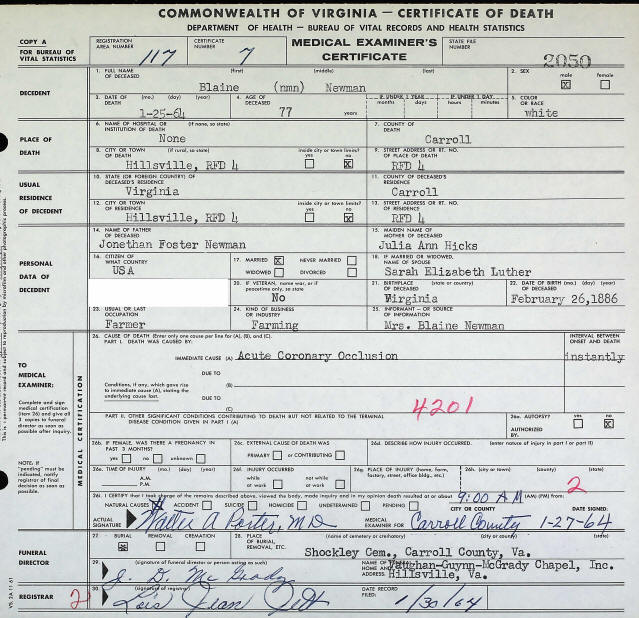 COMMONWEALTH OF VIRGINIA — CERTIFICATE OF DEATH
DEPARTMENT OF HEALTH — BUREAU OF VITAL RECORDS AND HEALTH STATISTICS
COPY A
FOR BUREAU OF
VITAL STATISTICS
REGISTRATION
AREA NUMBER 117
CERTIFICATE
NUMBER 7
MEDICAL EXAMINER'S
CERTIFICATE
STATE FILE
NUMBER
2050
DECEDENT
1. FULL NAME OF DECEASED (first) (middle) (last)
Blaine (nmn) Newman
2. SEX male female
X
3. DATE OF DEATH (mo.) (day) (year)
1-25-64
4. AGE OF DECEASED
77 years
IF UNDER 1 YEAR months days
IF UNDER 1 DAY hours minutes
5. COLOR OR RACE
white
PLACE OF
DEATH
6. NAME OF HOSPITAL OR INSTITUTION OF DEATH (if none, so state)
None
7. COUNTY OF DEATH
Carroll
8. CITY OR TOWN OF DEATH (if rural, so state) inside city or town limits? yes no
Hillsville, RFD 4 X
9. STREET ADDRESS OR RT. NO. OF PLACE OF DEATH
RFD 4
USUAL
RESIDENCE
OF DECEDENT
10. STATE (OR FOREIGN COUNTRY) OF DECEASED'S RESIDENCE
Virginia
11. COUNTY OF DECEASED'S RESIDENCE
Carroll
12. CITY OR TOWN OF RESIDENCE inside city or town limits? yes no
Hillsville, RFD 4 X
13. STREET ADDRESS OR RT. NO. OF RESIDENCE
RFD 4
PERSONAL
DATA OF
DECEDENT
14. NAME OF FATHER OF DECEASED
Jonethan Foster Newman
15. MAIDEN NAME OF MOTHER OF DECEASED
Julia Ann Hicks
16. CITIZEN OF WHAT COUNTRY
USA
17. MARRIED X NEVER MARRIED
WIDOWED DIVORCED
18. IF MARRIED OR WIDOWED, NAME OF SPOUSE
Sarah Elizabeth Luther
20. IF VETERAN, name war, or if peacetime only, so state
No
21. BIRTHPLACE (state or country)
Virginia
22. DATE OF BIRTH (mo.) (day) (year) OF DECEASED
February 26,1886
23. USUAL OR LAST OCCUPATION
Farmer
24. KIND OF BUSINESS OR INDUSTRY
Farming
25. INFORMANT — OR SOURCE OF INFORMATION
Mrs. Blaine Newman
TO
MEDICAL
EXAMINER:
Complete and sign
medical certification
(item 26) and give all
3 copies to funeral
director as soon as
possible after inquiry.
NOTE: IF
"pending" must be
indicated, notify
registrar of final
decision as soon as
possible.
MEDICAL CERTIFICATION
26. CAUSE OF DEATH (Enter only one cause per line for (A), (B), and (C).
PART I. DEATH WAS CAUSED BY:
INTERVAL BETWEEN
ONSET AND DEATH
IMMEDIATE CAUSE (A) Acute Coronary Occlusion instantly
DUE TO
Conditions, if any, which gave rise to immediate cause (A), stating the underlying cause last.
(B)
DUE TO
(C)
4201
PART II. OTHER SIGNIFICANT CONDITIONS CONTRIBUTING TO DEATH BUT NOT RELATED TO THE TERMINAL
DISEASE CONDITION GIVEN IN PART I (A)
26a. AUTOPSY? yes no
X
AUTHORIZED BY:
26b. IF FEMALE, WAS THERE A PREGNANCY IN PAST 3 MONTHS?
yes no unknown
26c. EXTERNAL CAUSE OF DEATH WAS
PRIMARY or CONTRIBUTING
26d. DESCRIBE HOW INJURY OCCURRED. (enter nature of injury in part I or part II)
26e. TIME OF INJURY (mo.) (day) (year)
A.M.
P.M.
26f. INJURY OCCURRED
while at work not while at work
26g. PLACE OF INJURY (home, farm, factory, street, office bldg., etc.)
26h. (city or town) (county) (state)
2
26i. I CERTIFY that I took charge of the remains described above, viewed the body, made inquiry and in my opinion death resulted at or about 9:00 AM (AM) (PM) from:
NATURAL CAUSES X ACCIDENT SUICIDE HOMICIDE UNDETERMINED PENDING
CITY OR COUNTY
DATE SIGNED:
ACTUAL SIGNATURE Walter A Porter, MD
MEDICAL EXAMINER FOR Carroll County 1-27-64
FUNERAL
DIRECTOR
27. BURIAL REMOVAL CREMATION
X
28. PLACE OF BURIAL, REMOVAL, ETC. (name of cemetery or crematory) (city or county) (state)
Shockley Cem., Carroll County, Va.
29. (signature of funeral director or person acting as such)
J. D. McGrady
NAME OF HOME AND ADDRESS: Vaughan-Guynn-McGrady Chapel, Inc.
Hillsville, Va.
REGISTRAR
2
30. (signature of registrar)
Lois Jean
DATE RECORD FILED: 1/30/64
VS. 2A 11-61